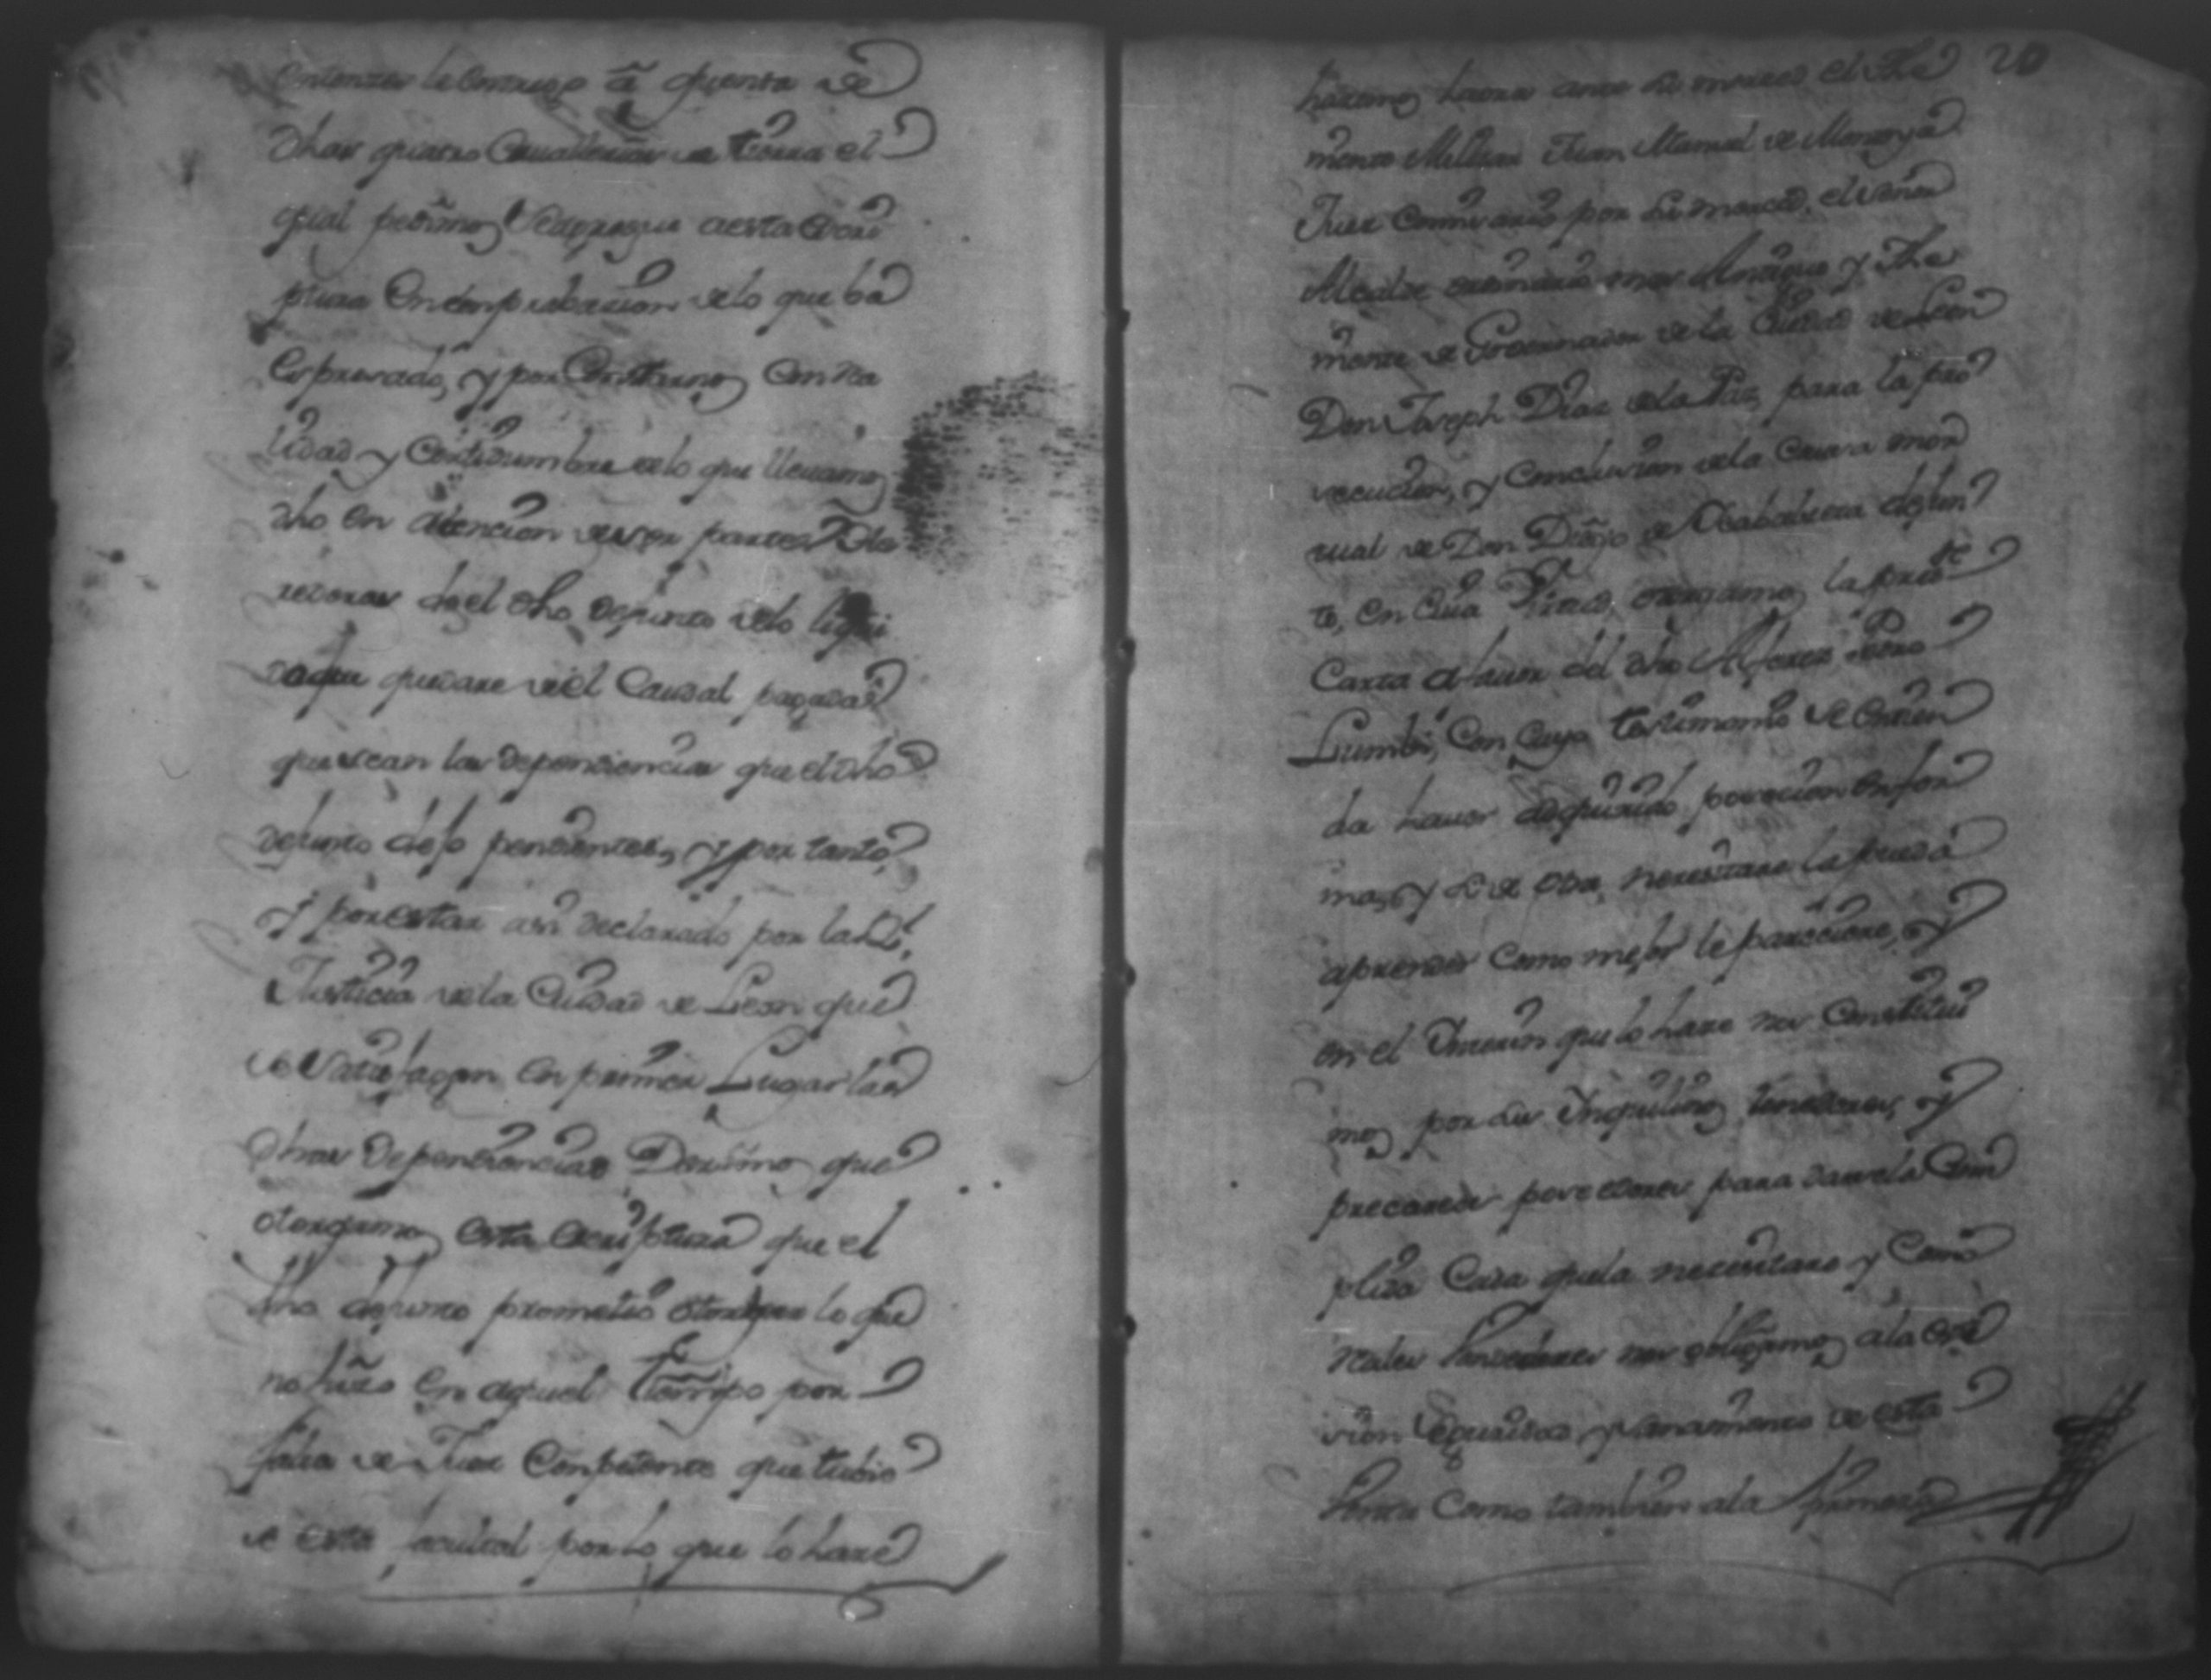 entonces le entrego â quenta de
dhas quatro Cauallerias de tierra el
qual pedimos se agregue a esta escri
ptura En comprobacion de lo que ba
Expresado, y por Constarnos Con rea
lidad y Certidumbre de lo que lleuamos
dho en atencion de ser partes
del dho defunto de lo liqui
do que quedare de el Caudal pagadas
que sean las dependencias que el dho
defunto dejo pendientes, y por tanto
y por estar asi declarado por la Rl
Justicia de la Ciudad de Leon que
se satisfagan en primer Lugar las
dhas dependencias Dezimos que
otorgamos esta escriptura que el
dho defunto prometio otorgar lo que
no hizo En aquel tiempo por
falta de Juez Conpetente que tubie
se esta facultad por lo que lo haze
20
hazemos haora ante su merced el The
niente Militar Juan Manuel de
Juez Comisario por su merced, el señor
Alcalde ordinario mas Antiguo y The
niente de Governador de la Ciudad de Leon
Don Joseph Diaz de la Paz, para la pro
secucion, y Conclusion de la Causa mor
tual de Don Diego de defun
to, en Cuia Virtud, otorgamos la presте
Carta a fauor del dho Alferez Pedro
Lumbi, Con Cuyo testimonio se entien
da hauer adquirido posecion en for
ma, y si de otra, necesitare la pueda
aprender Como mejor le pareciere, y
en el interin que lo haze nos Constitui
mos por sus Inquilinos tenedores, y
precarios poseedores para darsela Cum
plida Cada que la necesitare y Como
reales Vendedores nos obligamos a la evi
sion seguridad, y saneamiento de esta
Venta Como tambien a la primera